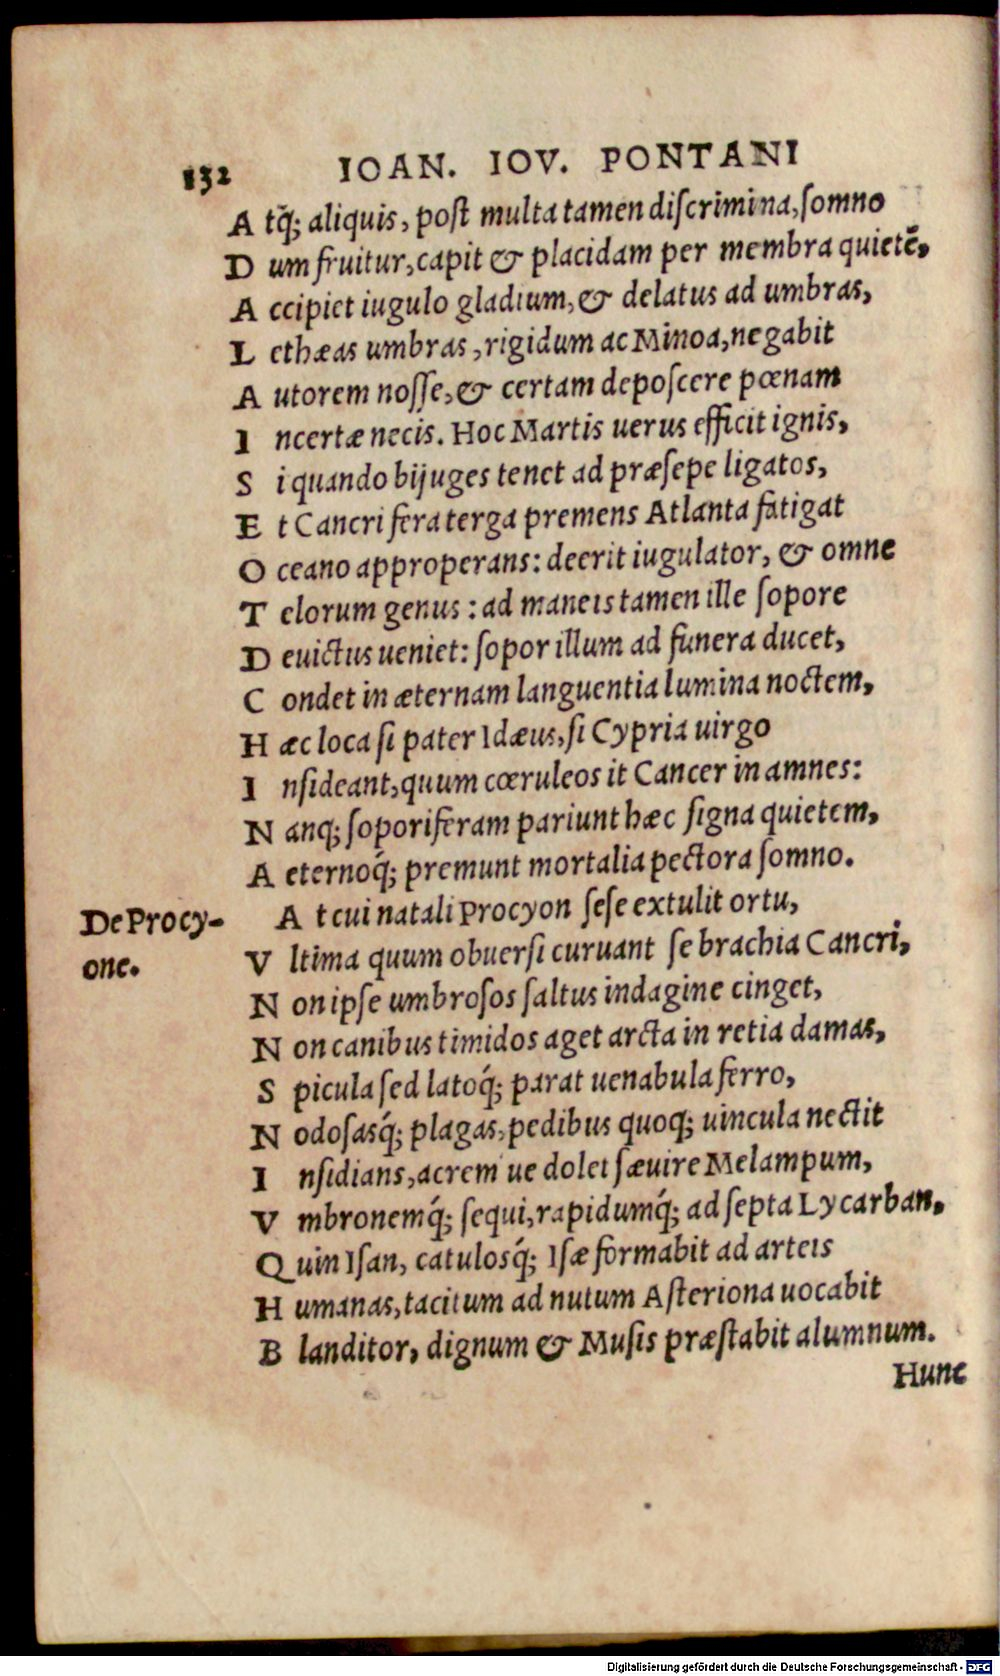 132 IOAN. IOV. PONTANI
A tq̃; aliquis, poſt multa tamen diſcrimina, ſomno
D um fruitur, capit & placidam per membra quietẽ,
A ccipiet iugulo gladium, & delatus ad umbras,
L ethæas umbras, rigidum ac Minoa, negabit
A utorem noſſe, & certam depoſcere pœnam
I ncertæ necis. Hoc Martis uerus efficit ignis,
S i quando bijuges tenet ad præſepe ligatos,
E t Cancri fera terga premens Atlanta fatigat
O ceano approperans: deerit iugulator, & omne
T elorum genus: ad maneis tamen ille ſopore
D euictus ueniet: ſopor illum ad funera ducet,
C ondet in æternam languentia lumina noctem,
H æc loca ſi pater Idæus, ſi Cypria uirgo
I nſideant, quum cœruleos it Cancer in amnes:
N anq; ſoporiferam pariunt hæc ſigna quietem,
A eternoq́; premunt mortalia pectora ſomno.
De Procy-
one.
A t cui natali Procyon ſeſe extulit ortu,
V ltima quum obuerſi curuant ſe brachia Cancri,
N on ipſe umbroſos ſaltus indagine cinget,
N on canibus timidos aget arcta in retia damas,
S picula ſed latoq́; parat uenabula ferro,
N odoſasq́; plagas, pedibus quoq; uincula nectit
I nſidians, acrem ue dolet ſæuire Melampum,
V mbronemq́; ſequi, rapidumq́; ad ſepta Lycarban,
Q uin Iſan, catulosq́; Iſæ formabit ad arteis
H umanas, tacitum ad nutum Aſteriona uocabit
B landitor, dignum & Muſis præſtabit alumnum.
Hunc
Digitalisierung gefördert durch die Deutsche Forschungsgemeinschaft - DFG